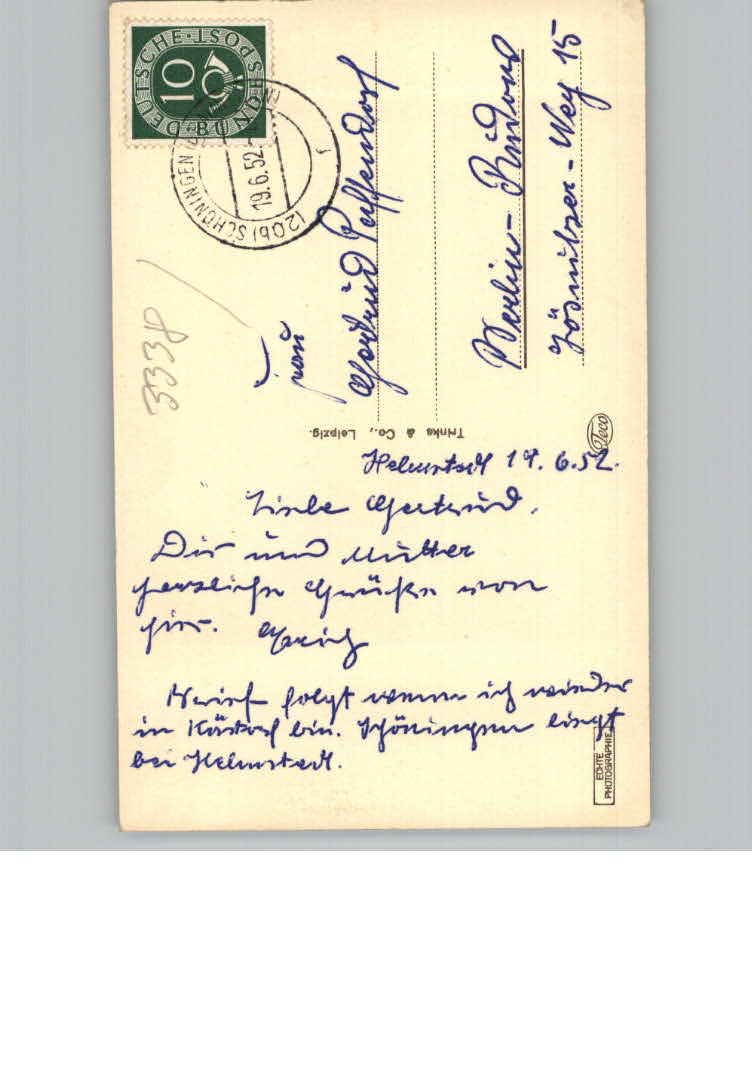 DEUTSCHE BUNDESPOST
10
(20b) SCHÖNINGEN
19.6.52
f
3338
Frau
Gertrud
Berlin-Rudow
Weg 15
Trinks & Co., Leipzig.
Teco
Helmstedt 19.6.52.
Liebe Gertrud.
Dir und Mutter
herzliche Grüße von
hier. Erich
Brief folgt wenn ich wieder
in Kästorf bin. Schöningen liegt
bei Helmstedt.
ECHTE
PHOTOGRAPHIE